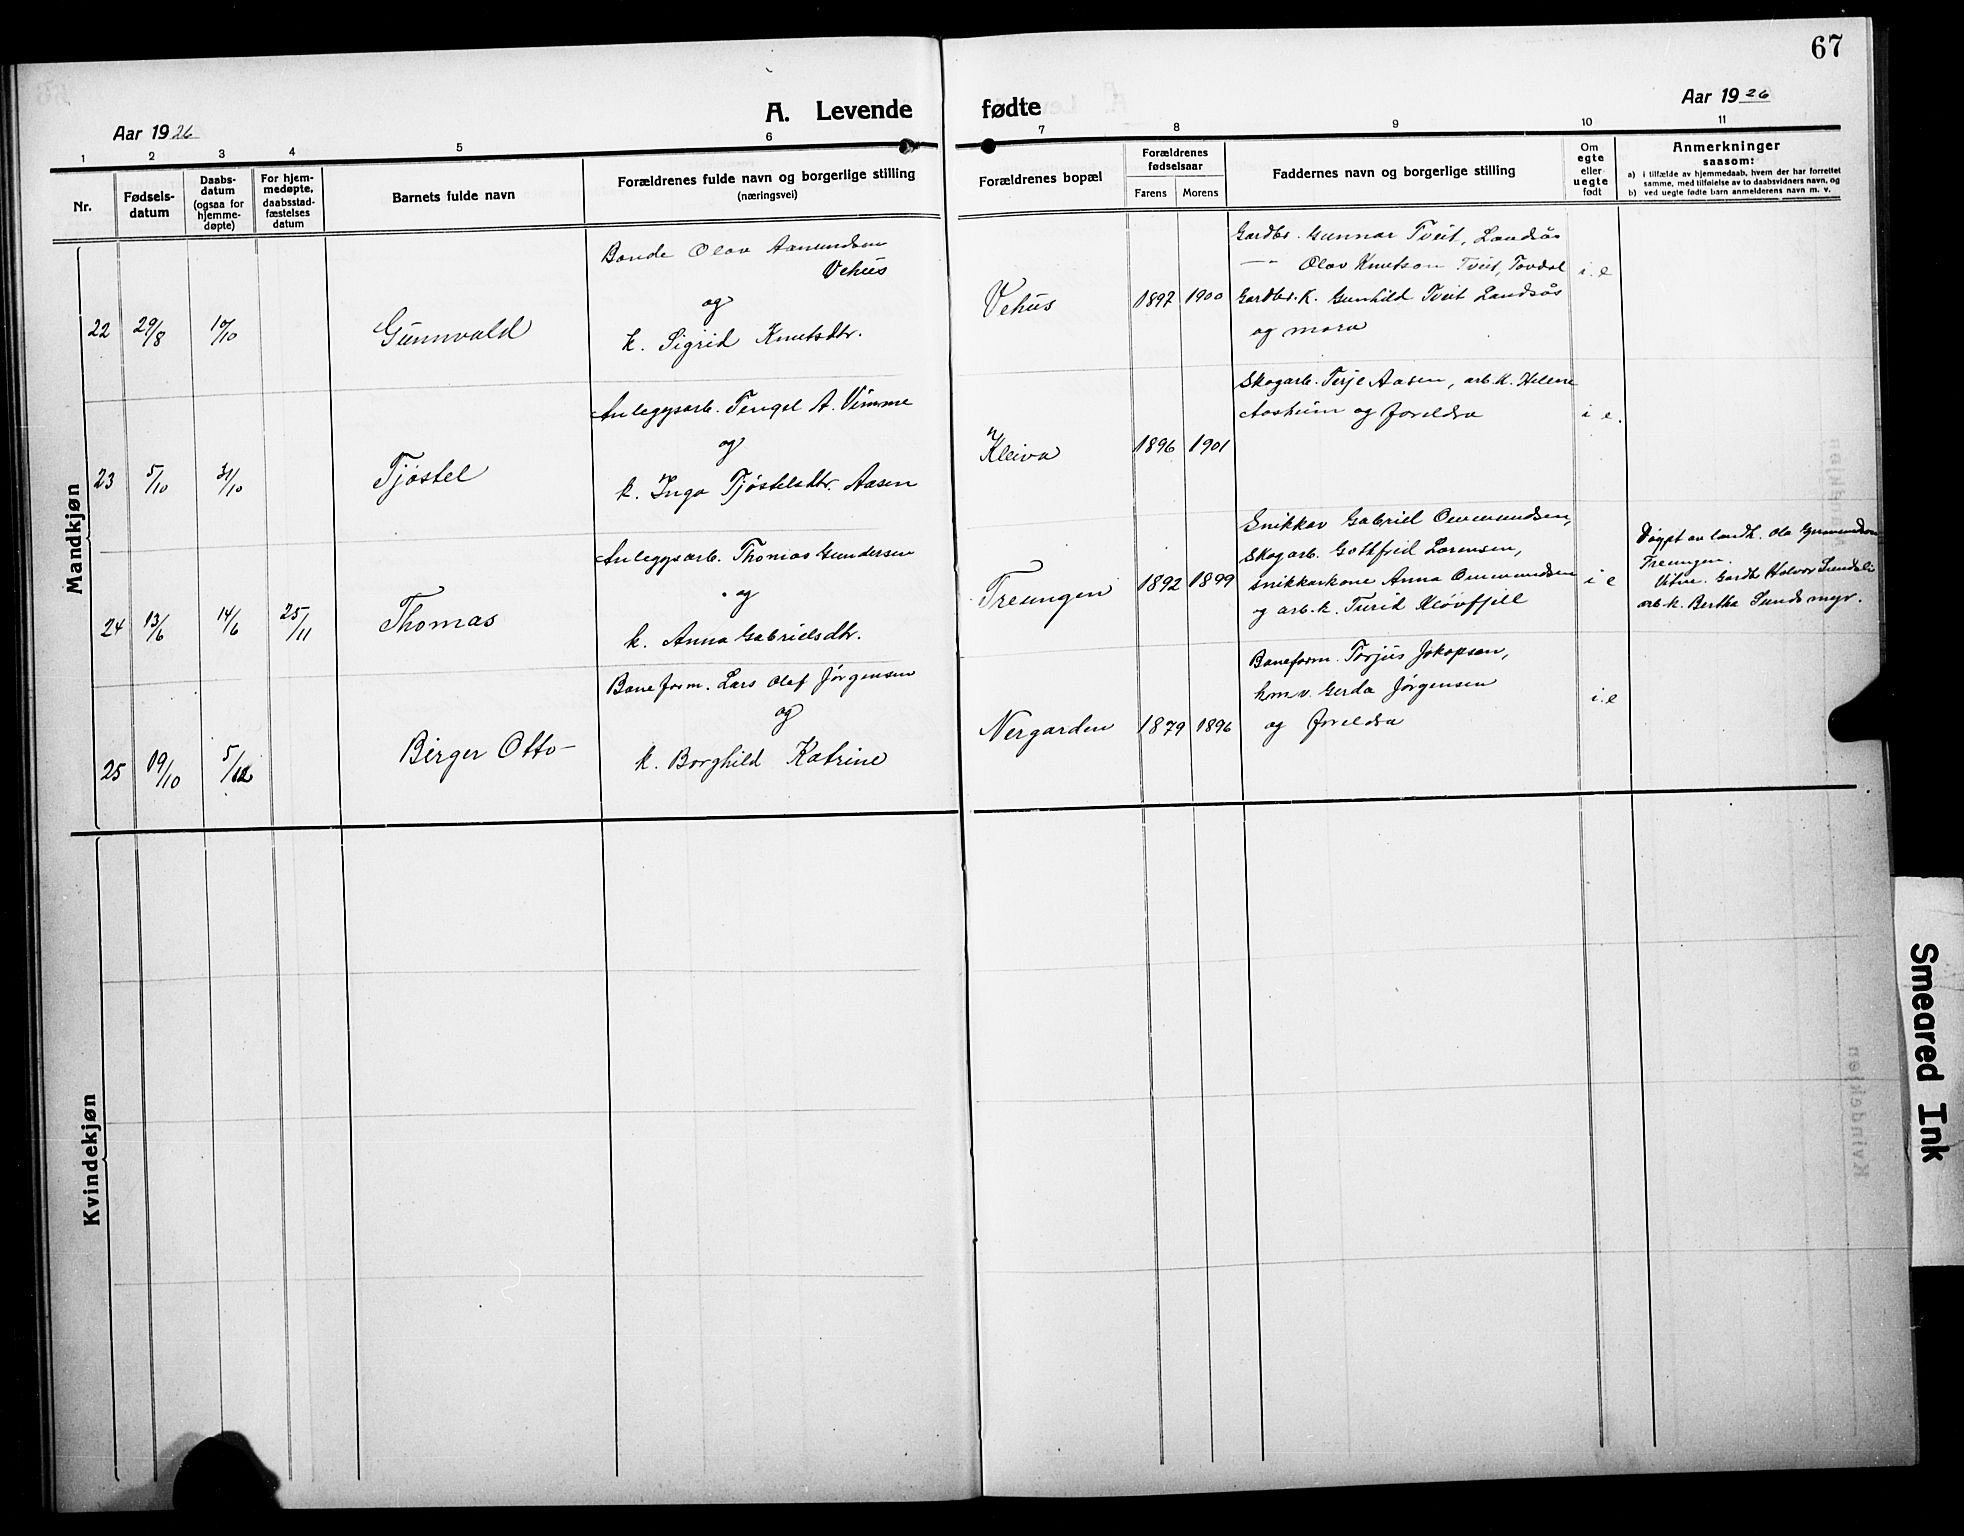 67
A. Levende fødte
Aar 1926
Aar 1926
1 2 3 4 5 6 7 8 9 10 11
Nr.
Fødsels-
datum
Daabs-
datum
(ogsaa for
hjemme-
døpte)
For hjem-
medøpte,
daabsstad-
fæstelses
datum
Barnets fulde navn
Forældrenes fulde navn og borgerlige stilling
(næringsvei)
Forældrenes bopæl
Forældrenes
fødselsaar
Farens Morens
Faddernes navn og borgerlige stilling
Om
egte
eller
uegte
født
Anmerkninger
saasom:
a) i tilfælde av hjemmedaab, hvem der har forrettet
samme, med tilføielse av to daabsvidners navn, og
b) ved uegte fødte barn anmelderens navn m. v.
Mandkjøn
22 29/8 10/10 Gunnvald
Bonde Olav Aamundsen
Vehus
og
k. Sigrid Knutsdtr.
Vehus 1897 1900
Gardbr. Gunnar Tveit, Landsås
—"— Olav Knutson Tveit, Tovdal
Gardbr. k. Gunhild Tveit Landsås
og mora
i. e
23 5/10 31/10 Tjøstel
Anleggsarb. Tengel A. Vimme
og
k. Inga Tjøstelsdtr. Aasen
Kleiva 1896 1901
Skogarb. Terje Aasen, arb. k. Helene
Aasheim og foreldra
i e.
24 13/6 14/6 25/11 Thomas
Anleggsarb. Thomas Gundersen
og
k. Anna Gabrielsdtr.
Treungen 1892 1899
Snikkar Gabriel Ommundsen,
Skogarb. Gothfred Lorensen,
snikkarkone Anna Ommundsen
og arb. k. Turid Kløvfjell
i e
Døypt av landh. Ola
Treungen.
Vitne. Gardb Halvor
arb. k. Bertha Sundsmyr.
25 19/10 5/12 Birger Otto
Baneform. Lars Olaf Jørgensen
og
k. Borghild Katrine
Nergarden 1879 1896
Baneform. Torjus Jakopsen,
hm v. Gerda Jørgensen
og foreldra
i. e
Kvindekjøn
Smeared Ink